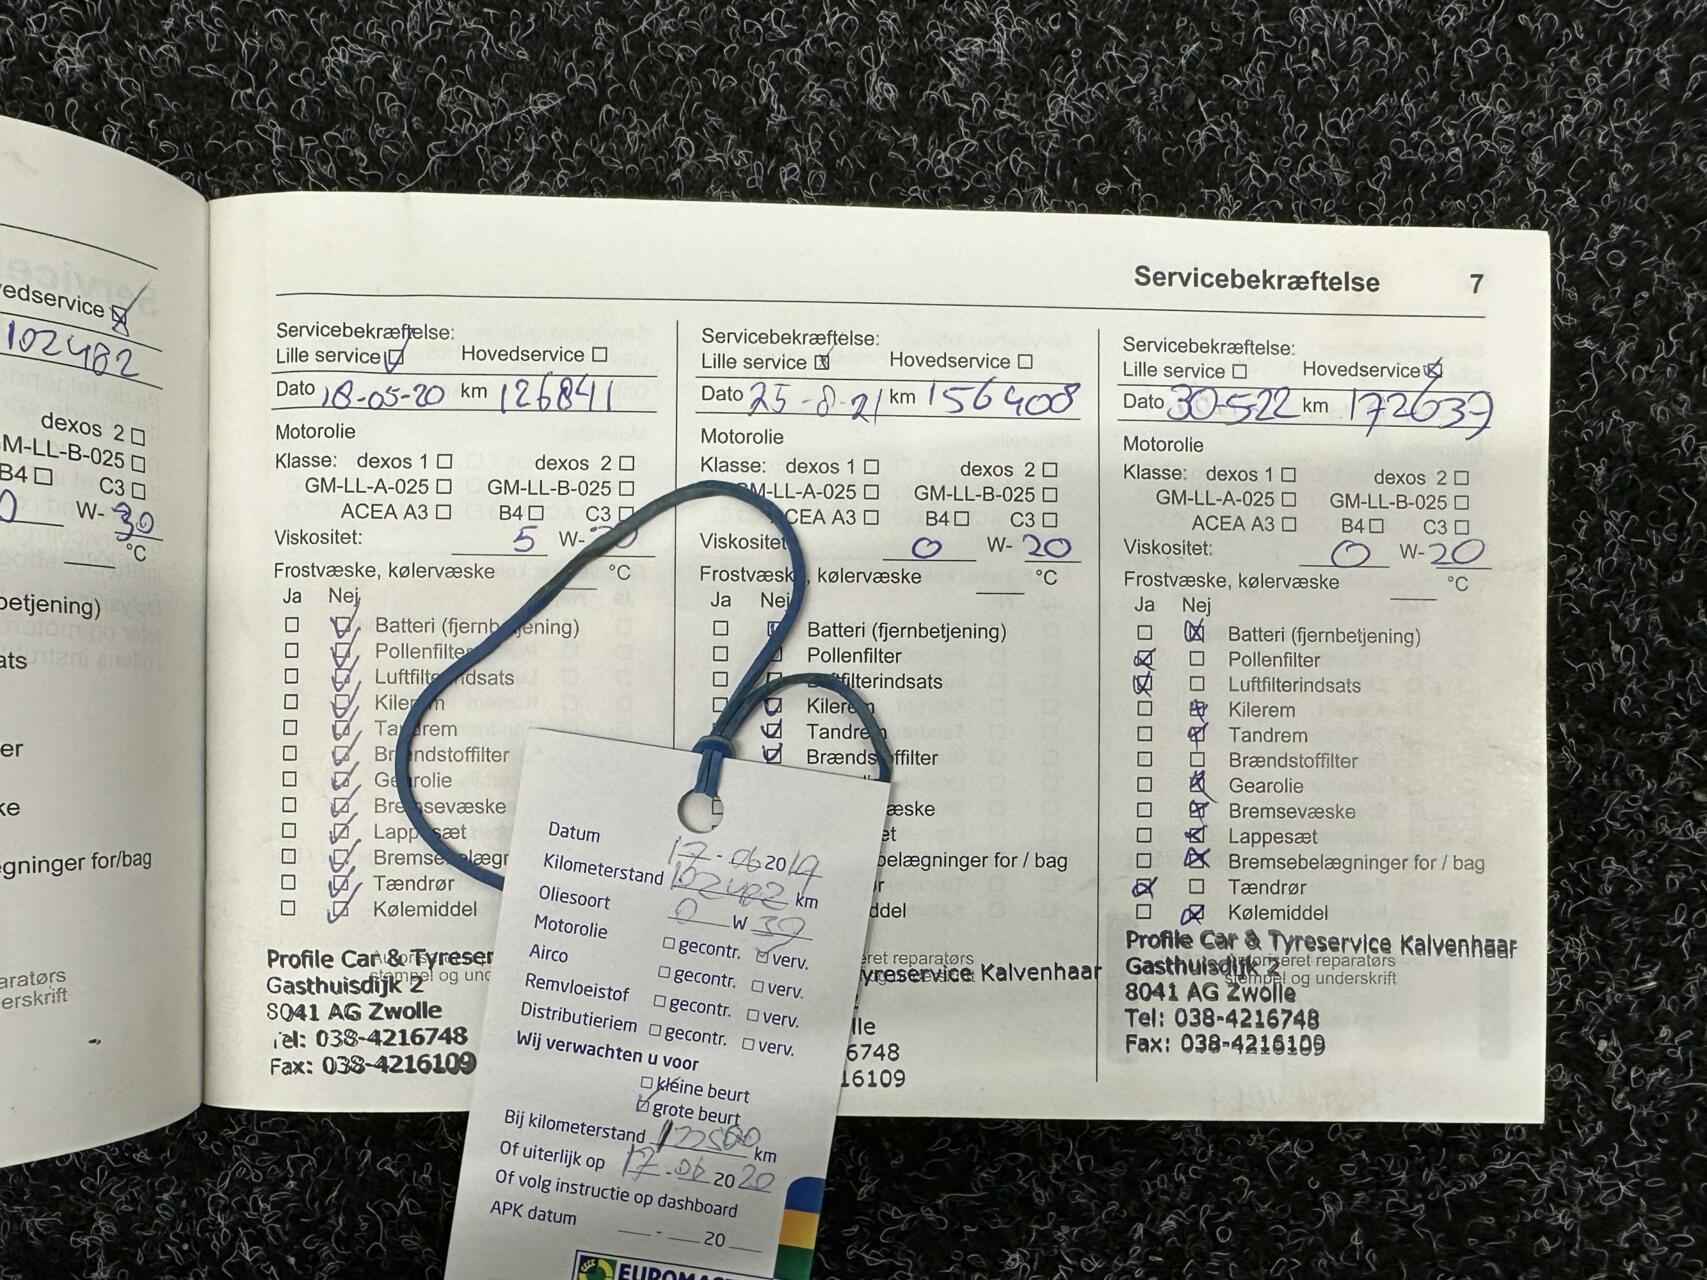 vedservice
102482
dexos 2
GM-LL-B-025
B4 C3
W- 30
°C
betjening)
ats
er
ke
gninger for/bag
aratørs
erskrift
Servicebekræftelse 7
Servicebekræftelse:
Lille service Hovedservice
Dato 18-05-20 km 126841
Motorolie
Klasse: dexos 1 dexos 2
GM-LL-A-025 GM-LL-B-025
ACEA A3 B4 C3
Viskositet: 5 W-
Frostvæske, kølervæske °C
Ja Nej
Batteri (fjernbetjening)
Pollenfilter
Luftfilterindsats
Kilerem
Tandrem
Brændstoffilter
Gearolie
Bremsevæske
Lappesæt
Bremsebelægn
Tændrør
Kølemiddel
Profile Car & Tyreser
stempel og und
Gasthuisdijk 2
8041 AG Zwolle
Tel: 038-4216748
Fax: 038-4216109
Servicebekræftelse:
Lille service Hovedservice
Dato 25-8-21 km 156408
Motorolie
Klasse: dexos 1 dexos 2
GM-LL-A-025 GM-LL-B-025
ACEA A3 B4 C3
Viskositet 0 W- 20
Frostvæske, kølervæske °C
Ja Nej
Batteri (fjernbetjening)
Pollenfilter
Luftfilterindsats
Kilerem
Tandrem
Brændstoffilter
æske
et
belægninger for / bag
r
ddel
eret reparatørs
yreservice Kalvenhaar
lle
6748
16109
Servicebekræftelse:
Lille service Hovedservice
Dato 30-522 km 172637
Motorolie
Klasse: dexos 1 dexos 2
GM-LL-A-025 GM-LL-B-025
ACEA A3 B4 C3
Viskositet: 0 W- 20
Frostvæske, kølervæske °C
Ja Nej
Batteri (fjernbetjening)
Pollenfilter
Luftfilterindsats
Kilerem
Tandrem
Brændstoffilter
Gearolie
Bremsevæske
Lappesæt
Bremsebelægninger for / bag
Tændrør
Kølemiddel
Profile Car & Tyreservice Kalvenhaar
eret reparatørs
Gasthuisdijk 2
stempel og underskrift
8041 AG Zwolle
Tel: 038-4216748
Fax: 038-4216109
Datum 17-06 2019
Kilometerstand 102482 km
Oliesoort 0 W 30
Motorolie gecontr. verv.
Airco gecontr. verv.
Remvloeistof gecontr. verv.
Distributieriem gecontr. verv.
Wij verwachten u voor
kleine beurt
grote beurt
Bij kilometerstand km
Of uiterlijk op 17-06 2020
Of volg instructie op dashboard
APK datum - 20
EUROMAS